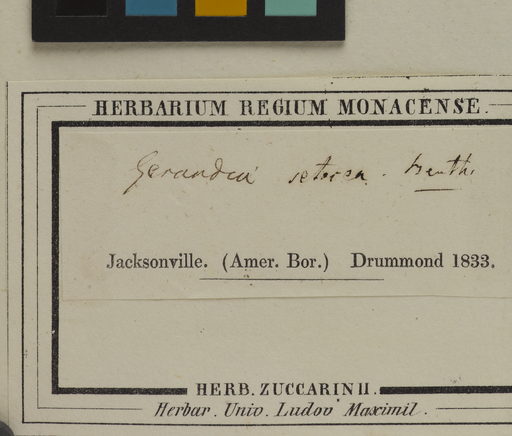 HERBARIUM REGIUM MONACENSE.
Gerardia setacea. Benth.
Jacksonville. (Amer. Bor.) Drummond 1833.
HERB. ZUCCARINII.
Herbar. Univ. Ludov Maximil.